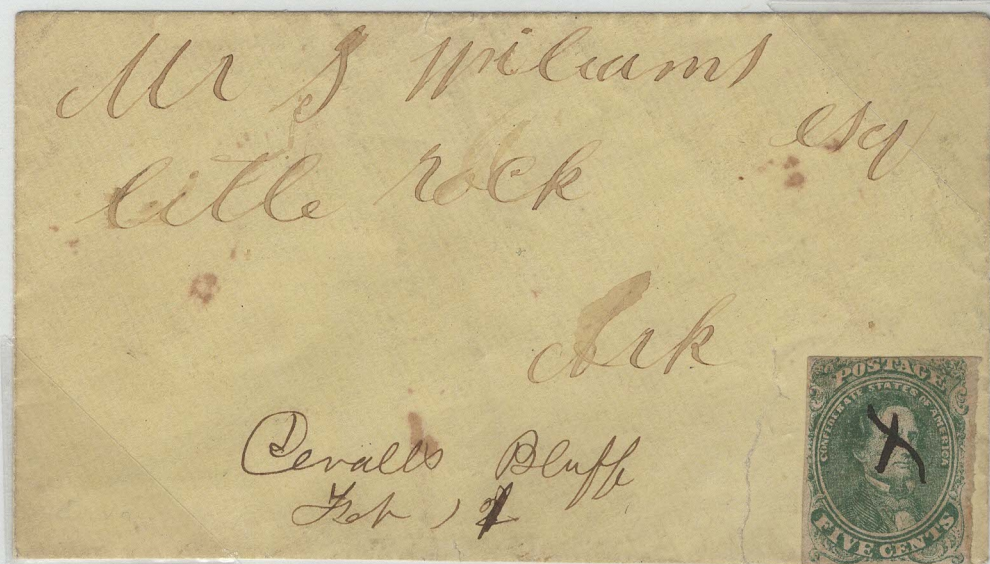 Mr S Williams
esq
little rock
Ark
Devalls Bluff
Feb, 2
POSTAGE
CONFEDERATE STATES OF AMERICA
FIVE CENTS